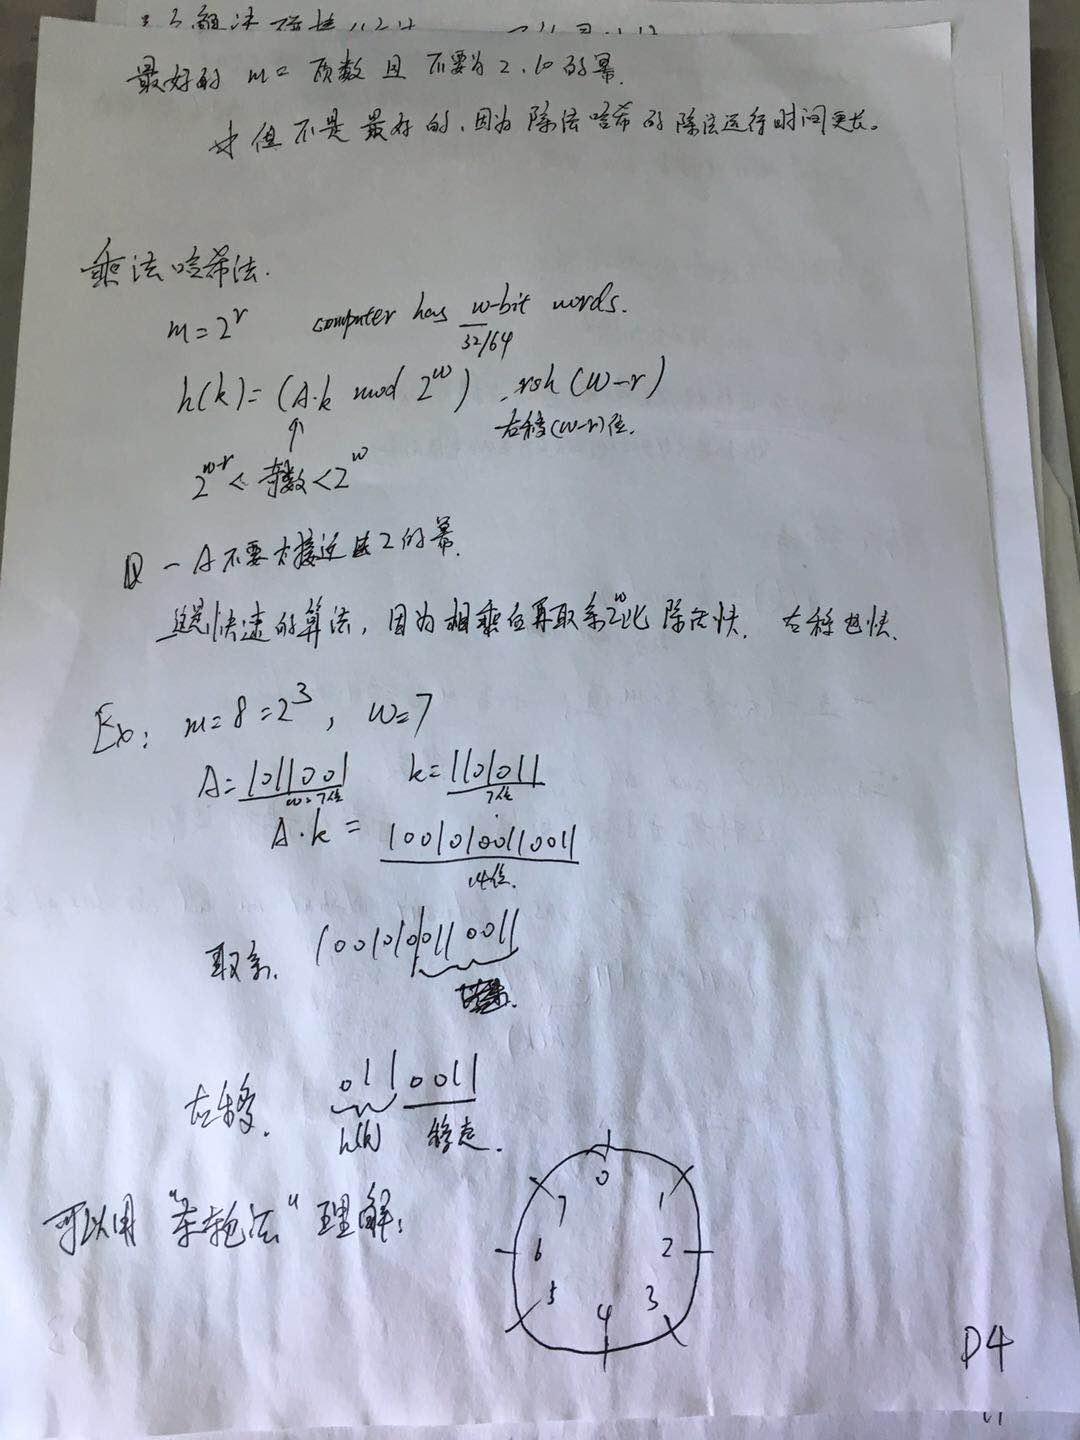 最好的 m = 质数 且 不要为 2、10 的幂.
但不是最好的, 因为除法哈希的除法运行时间更长。
乘法哈希法.
m = 2^r computer has w-bit words.
32/64
h(k) = (A·k mod 2^w) rsh (w-r)
右移(w-r)位.
2^(w-r) < 奇数 < 2^w
- A 不要太接近 2 的幂.
这是快速的算法, 因为相乘后再取余2^w比除法快. 右移也快.
Ex: m = 8 = 2^3, w = 7
A = 1011001 k = 1101011
w = 7位 7位
A·k = 10010100110011
14位.
取余. 10010100110011
右移. 011 0011
h(k) 移走.
可以用 "轮 法" 理解:
0
1
2
3
4
5
6
7
P4